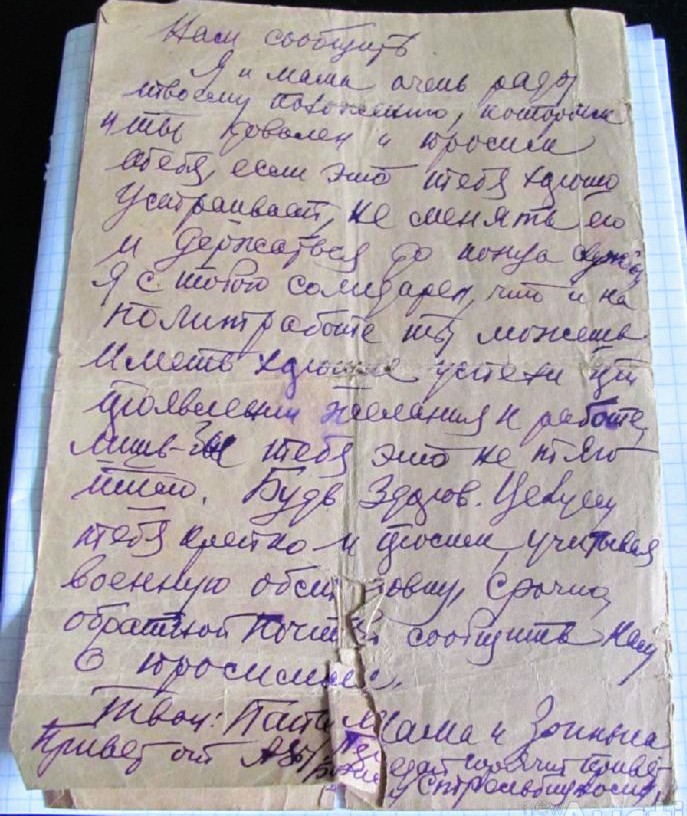 Нам сообщить
Я и мама очень рады
твоему положению, которым
и ты доволен и просим
тебя, если это тебя хорошо
устраивает, не менять его
и держаться до конца службы
Я с тобою солидарен, что и на
политработе ты можешь
иметь хорошие успехи при
проявлении желания к работе,
лишь-бы тебя это не тяго
тило. Будь здоров. Целуем
тебя крепко и просим, учитывая
военную обстановку, срочно,
обратной почтой сообщить нам
о просимом.
Твои: Папа Мама и Зоинька
Привет от
горячий привет